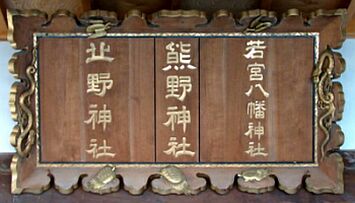 若宮八幡神社
熊野神社
北野神社